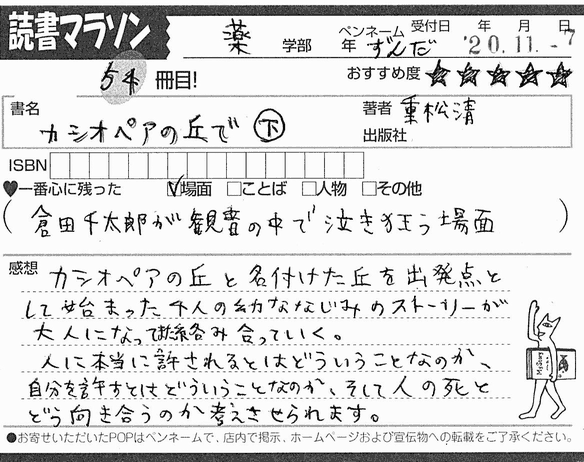 読書マラソン
薬 学部 年 ペンネーム ずんだ 受付日 年 月 日 '20.11.-7
54 冊目! おすすめ度 ★★★★★
書名 カシオペアの丘で 下
著者 重松清
出版社
ISBN
♥一番心に残った ☑場面 □ことば □人物 □その他
(倉田千太郎が観音の中で泣き狂う場面)
感想 カシオペアの丘と名付けた丘を出発点と
して始まった4人の幼ななじみのストーリーが
大人になって絡み合っていく。
人に本当に許されるとはどういうことなのか、
自分を許すとはどういうことなのか、そして人の死と
どう向き合うのか考えさせられます。
●お寄せいただいたPOPはペンネームで、店内で掲示、ホームページおよび宣伝物への転載をご了承ください。